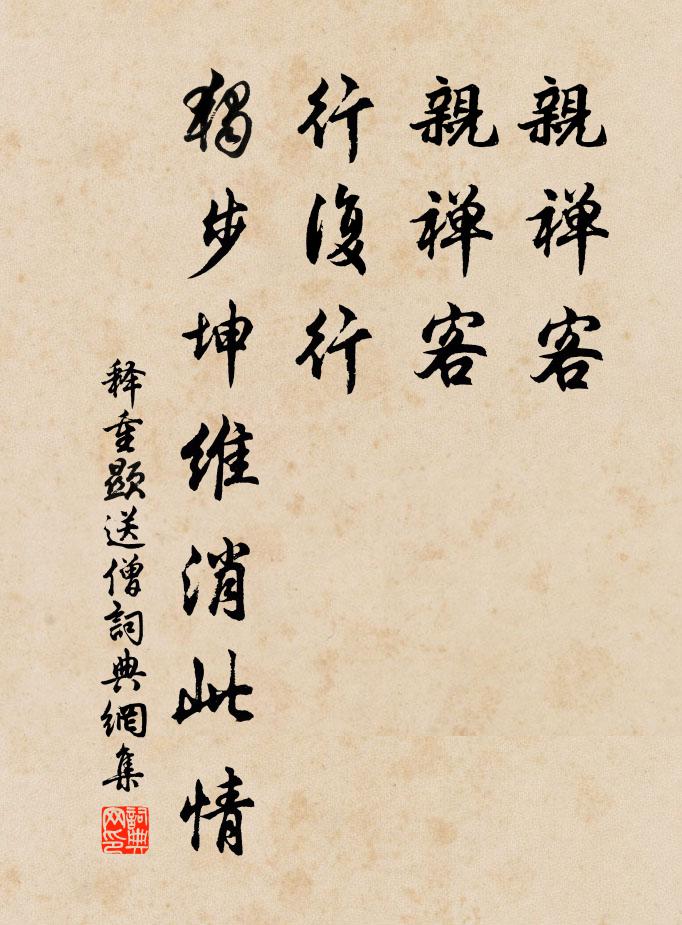 親禅客
親禅客
行復行
獨步坤維消此情
释重顯送僧詞典網集
詞典网印